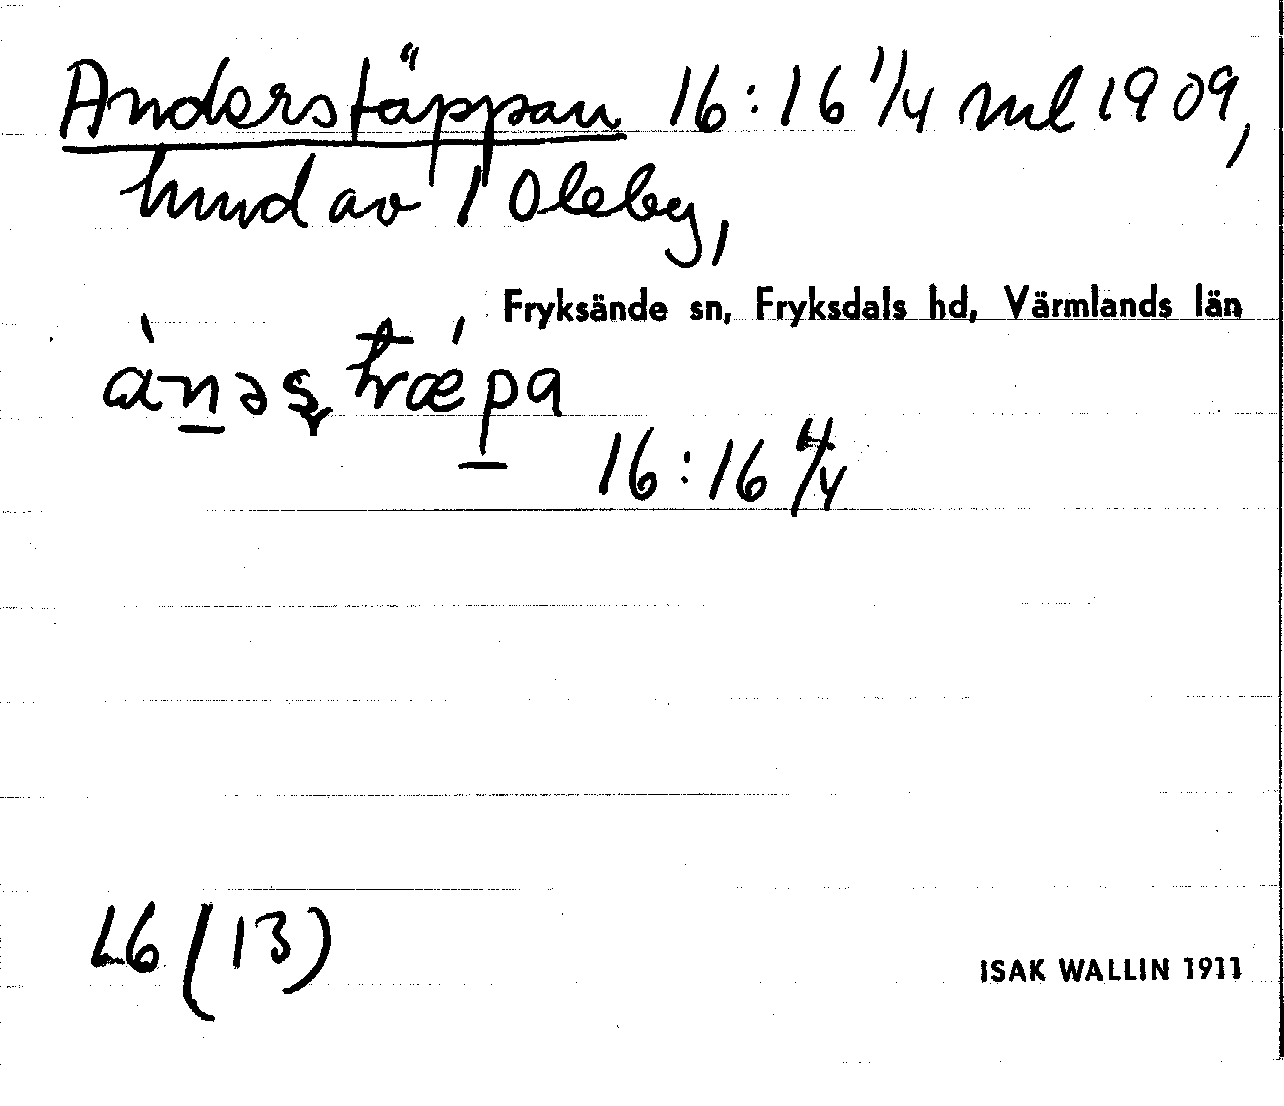 Anderstäppan 16:16 1/4 ml 1909,
hmd av 1 Oleby,
Fryksände sn, Fryksdals hd, Värmlands län
16:16 4/4
L6 (13)
ISAK WALLIN 1911